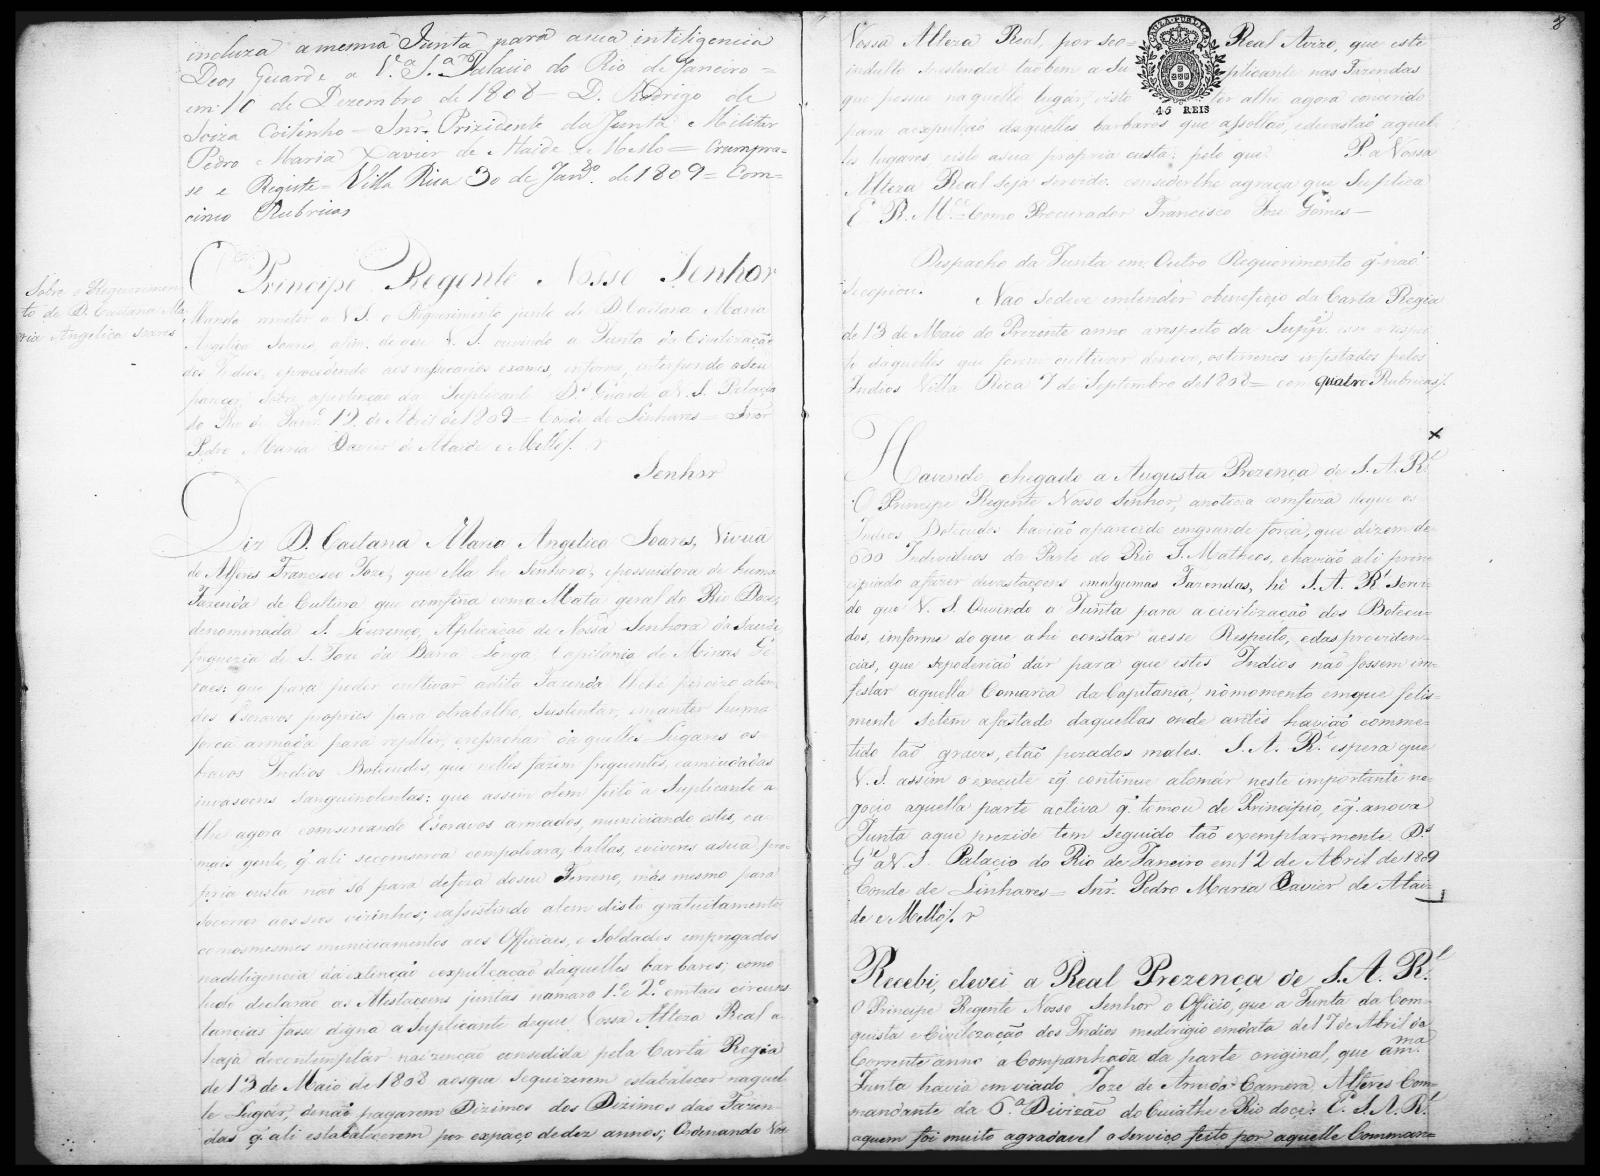 incluza a mesma Junta para a sua intiligencia
Deos Guarde a V.ª S.ª Palacio do Rio de Janeiro =
em 10 de Dezembro de 1808 = D. Rodrigo de
Soiza Coitinho = Snr. Prizidente da Junta Militar
Pedro Maria Xavier de Ataide e Mello = Crumpra=
se e Registe = Villa Rica 30 de Janr.º de 1809 = Com=
cinco Rubricas
Sobre o Requerimen
to de D. Caetana Ma
ria Angelica Soares
O Principe Regente Nosso Senhor
Manda remeter a V. S. o Requerimento junto de D. Caetana Maria
Angelica Soares, afim de que V. S. ouvindo a Junta da Civilização
dos Indios, eprocedendo aos nessecarios exames, informe, interpondo oseu
parecer, sobre apertenção da Suplicante D.s Guarde a V. S. Palacio
do Rio de Janr.º 12 de Abril de 1809 = Conde de Linhares = Snor
Pedro Maria Xavier de Ataide e Mello/. r
Senhor
Diz D. Caetana Maria Angelica Soares, Viuva
do Alferes Francisco Joze, que ella he Senhora, epossuidora de huma
Fazenda de Cultura que comfina coma Mata geral do Rio Doce,
denominada S. Lourenço, Aplicação de Nossa Senhora da Saude
freguezia de S. Joze da Barra Longa Capitania de Minas Ge
raes: que para poder cultivar adita Fazenda lhehe precizo alem
dos Escravos proprios para otrabalho, sustentar, emanter huma
força armada para repellir, erexachar daquelles Lugares os
bravos Indios Botecudos, que nelles fazem frequentes, eamiudadas
invasoens sanguinolentas: que assim otem feito a Suplicante a
the agora comservando Escravos armados, municiando estes, ea
mais gente, q̃ ali secomserva compolvara, ballas, eviveres asua pro
pria custa não só para defeza doseu Terreno, mas mesmo para
socorrer aosseos vizinhos; eassistindo alem disto gratuitamente
comosmesmos municiamentos aos Officiaes, e Soldados empregados
nadeligencia daextinção eexpulcação daquelles barbaros; como
tudo declarão as Atestaçoens juntas numaro 1.º e 2.º emtaes circuns
tancias fasse digna a Suplicante deque Vossa Alteza Real a
haja decontemplar naizenção consedida pela Carta Regia
de 13 de Maio de 1808 aosque sequizerem estabalecer naquel
le Lugar, denão pagarem Dizimos dos Dizimos das Fazen
das q̃ ali estabalecerem por espaço dedez annos; Ordenando Vos
8
Vossa Alteza Real, por seo = Real Avizo, que este
indulto seestenda taobem a Su plicante nas Fazendas
que possue naquelle lugar, visto ter athe agora concorrido
para aexpulção daquelles barbaros que assollão, edevastão aquel
les lugares, eisto asua propria custa; pelo que P. a Vossa
Alteza Real seja servido consederlhe agraça que Suplica
E R. M.ce = Como Procurador Francisco Joze Gomes =
Despacho da Junta em Outro Requerimento q̃ não
secopiou. Nao sedeve emtender obeneficio da Carta Regia
de 13 de Maio do Prezente anno arespeito da Supp.e
daquelles que forem cultivar denovo, osterrenos infestados pelos
Indios Villa Rica 7 de Septembro de 1808 = com quatro Rubricas/.
Havendo chegado a Augusta Prezença de S. A. R.l
O Principe Regente Nosso Senhor, anoticia comfuza deque os
Indios Botecudos havião aparecido emgrande força, que dizem de
600 Individuos da Parte do Rio S. Matheos, ehavião ali prin
cipiado afazer devastaçoens emalgumas Fazendas, hé S. A. R.l Servi
do que V. S. Ouvindo a Junta para a civilização dos Botecu
dos, imforme do que ahi constar aesse Respeito, edasproviden=
cias, que sepoderião dár para que estes Indios não fossem im
festar aquella Comarca da Capitania, nomomento emque felis=
mente setem afastado daquellas onde antes havião comme=
tido taõ graves, etaõ pezados males. S. A. R.l espera que
V. S. assim o execute eq̃ continue atomár neste importante ne=
gocio aquella parte activa q̃ tomou de Principio, eq̃ anova
Junta aque prezide tem seguido taõ exemplarmente D.s
G.e a V. S. Palaçio do Rio de Janeiro em 12 de Abril de 1809
Conde de Linhares = Snr. Pedro Maria Xavier de Atai=
de e Mello/. r
Recebi, elevei a Real Prezença de S. A. R.l
O Principe Regente Nosso Senhor o Officio, que a Junta da Com=
quista e Civilização dos Indios medirigio emdata de 17 de Abril do
Corrente anno aCompanhada da parte original, que am.ma
Junta havia emviado Joze de Arruda Camera, Alferes Com=
mandante da 6.ª Divizão do Cuiathe e Rio doce: E S. A. R.l
aquem foi muito agradavel oserviço feito por aquelle Comman=
CAUZA PUBLICA
45 REIS